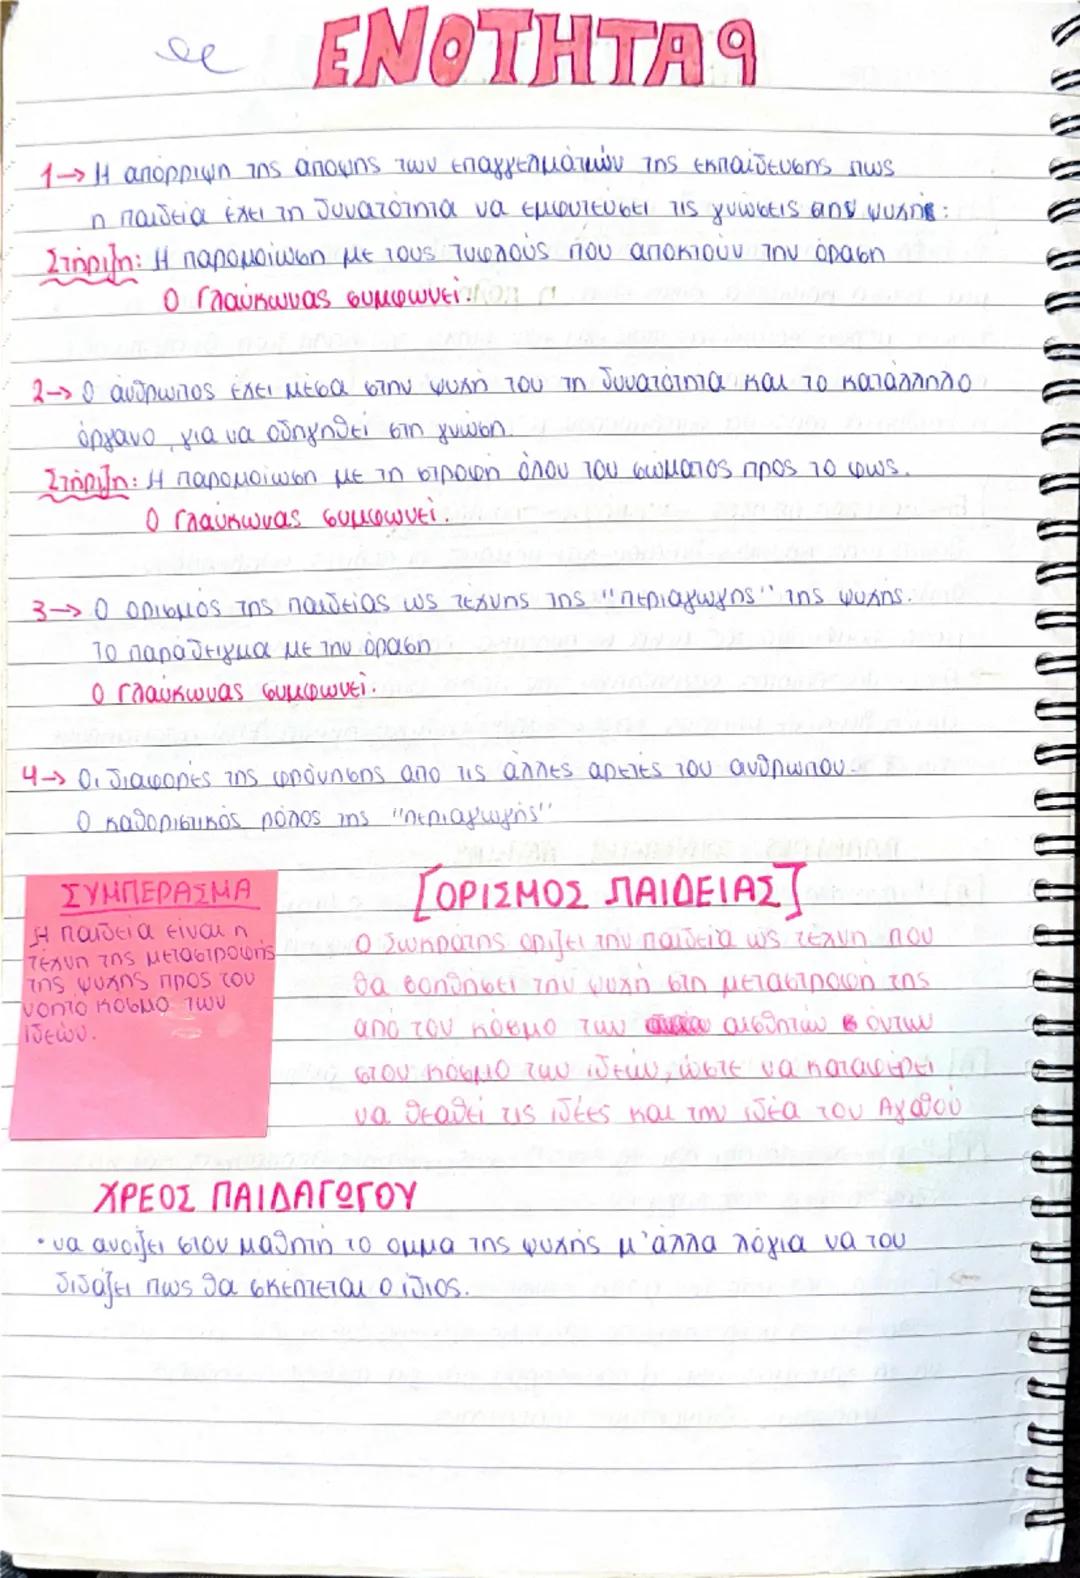 ΕΝΟΤΗΤΑ 9
1→ Η απόρριψη της άποψης των επαγγελματιών της εκπαίδευσης πως
η παιδεία έχει τη δυνατότητα να εμφυτεύσει τις γνώσεις στην ψυχή:
Στήριξη: Η παρομοίωση με τους τυφλούς που αποκτούν την όραση
Ο Γλαύκωνας συμφωνεί.
2→ Ο άνθρωπος έχει μέσα στην ψυχή του τη δυνατότητα και το κατάλληλο
όργανο για να οδηγηθεί στη γνώση.
Στήριξη: Η παρομοίωση με τη στροφή όλου του σώματος προς το φως.
Ο Γλαύκωνας συμφωνεί.
3→ Ο ορισμός της παιδείας ως τέχνης της "περιαγωγής" της ψυχής.
Το παράδειγμα με την όραση
Ο Γλαύκωνας συμφωνεί.
4→ Οι διαφορές της φρόνησης από τις άλλες αρετές του ανθρώπου.
Ο καθοριστικός ρόλος της "περιαγωγής"
ΣΥΜΠΕΡΑΣΜΑ
Η παιδεία είναι η
τέχνη της μεταστροφής
της ψυχής προς τον
νοητό κόσμο των
ιδεών.
[ΟΡΙΣΜΟΣ ΠΑΙΔΕΙΑΣ]
Ο Σωκράτης ορίζει την παιδεία ως τέχνη που
θα βοηθήσει την ψυχή στη μεταστροφή της
από τον κόσμο των αισθητών όντων
στον κόσμο των ιδεών, ώστε να καταφέρει
να θεαθεί τις ιδέες και την ιδέα του Αγαθού
ΧΡΕΟΣ ΠΑΙΔΑΓΩΓΟΥ
• να ανοίξει στον μαθητή το όμμα της ψυχής μ'άλλα λόγια να του
διδάξει πως θα σκέπτεται ο ίδιος.